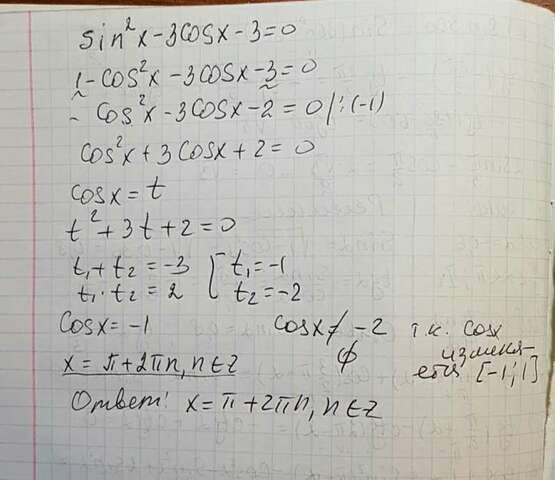 sin²x-3cosx-3=0
1-cos²x-3cosx-3=0
-cos²x-3cosx-2=0 /:(-1)
cos²x+3cosx+2=0
cosx=t
t²+3t+2=0
t₁+t₂=-3 [ t₁=-1
t₁·t₂=2 t₂=-2
cosx=-1 cosx≠-2 т.к. cosx
x=π+2πn, n∈Z ∅ изменя-
ется [-1;1]
Ответ: x=π+2πn, n∈Z